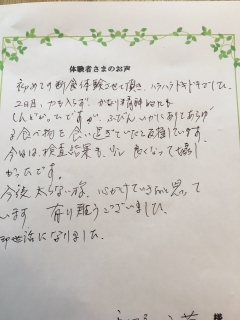 体験者さまのお声
初めての断食体験させて頂き、ハラハラドキドキでした。
2日目、力も入らず、かなり精神的にも
しんどかったですが、ふだん、いかにありとあらゆ
る食べ物を食い過ぎていたと反省しています。
今日は、検査結果も、少し良くなって嬉し
かったです。
今後、太らない様、心がけていきたいと思って
います。有り難うございました。
御世話になりました。
様